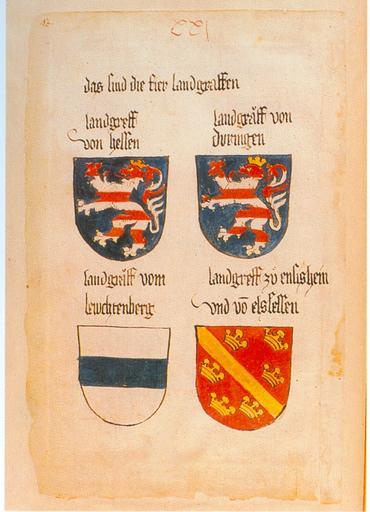 das sind die fier landgraffen
landgreff
von hessen
landgräff von
duringen
landgräff vom
lewchtenberg
landgreff zü enlisheim
vnd võ elssessen